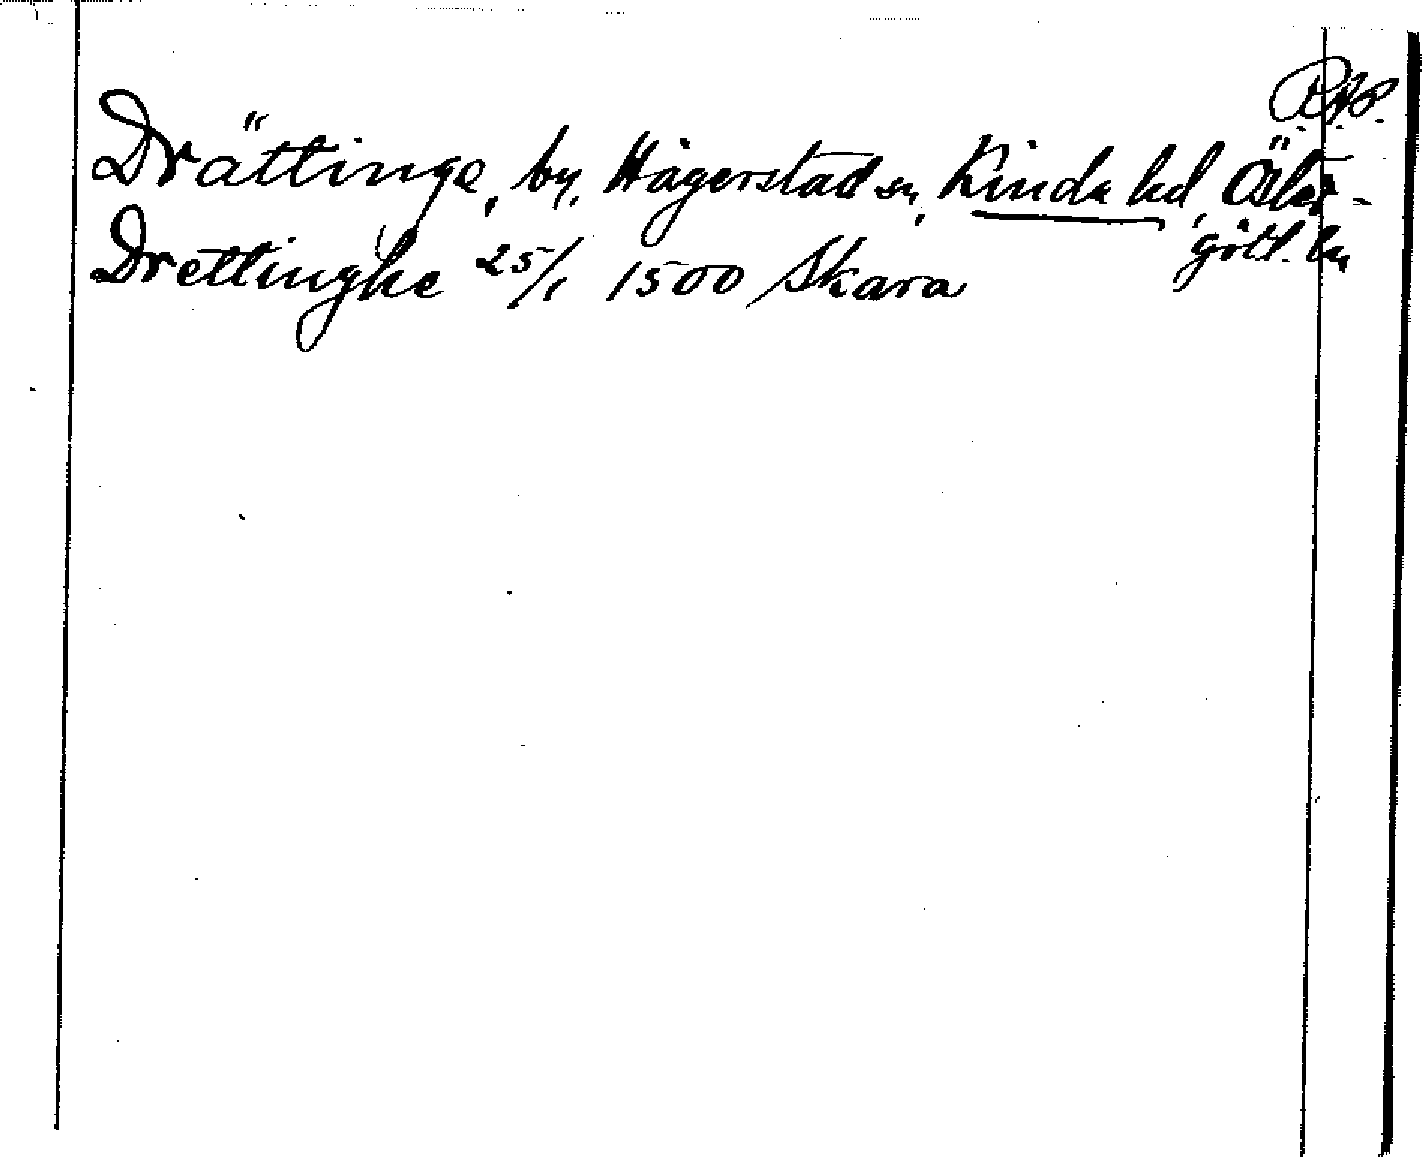 Drättinge, by, Hägerstad sn, Kinda hd, Öster-
götl. ln
Drettinghe 25/1 1500 Skara